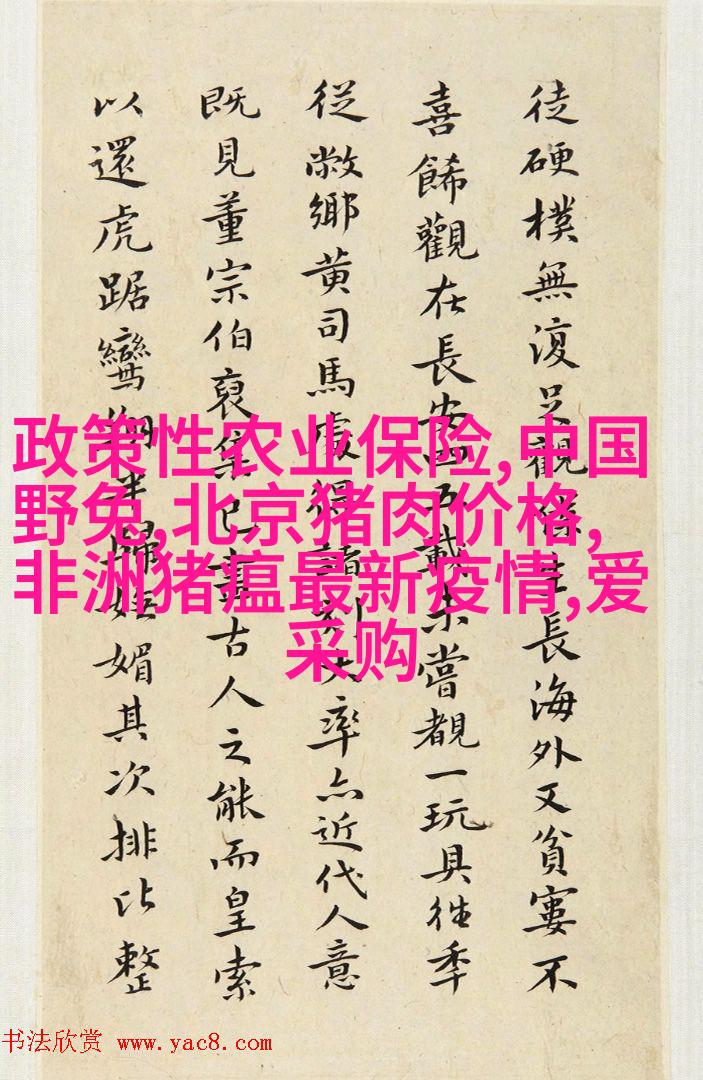 徒硬樸無復足觀僕生長海外又貧寠不
喜餙觀在長安四五載未嘗覩一玩具往季
從敝鄉黄司馬處得諸刻大率亦近代人意
既見董宗伯裒集已書古人之能而皇索
以還虎踞鸞翔半歸娬媚其次排比整
政策性农业保险,中国
野兔,北京猪肉价格,
非洲猪瘟最新疫情,爱
采购
书法欣赏 www.yac8.com